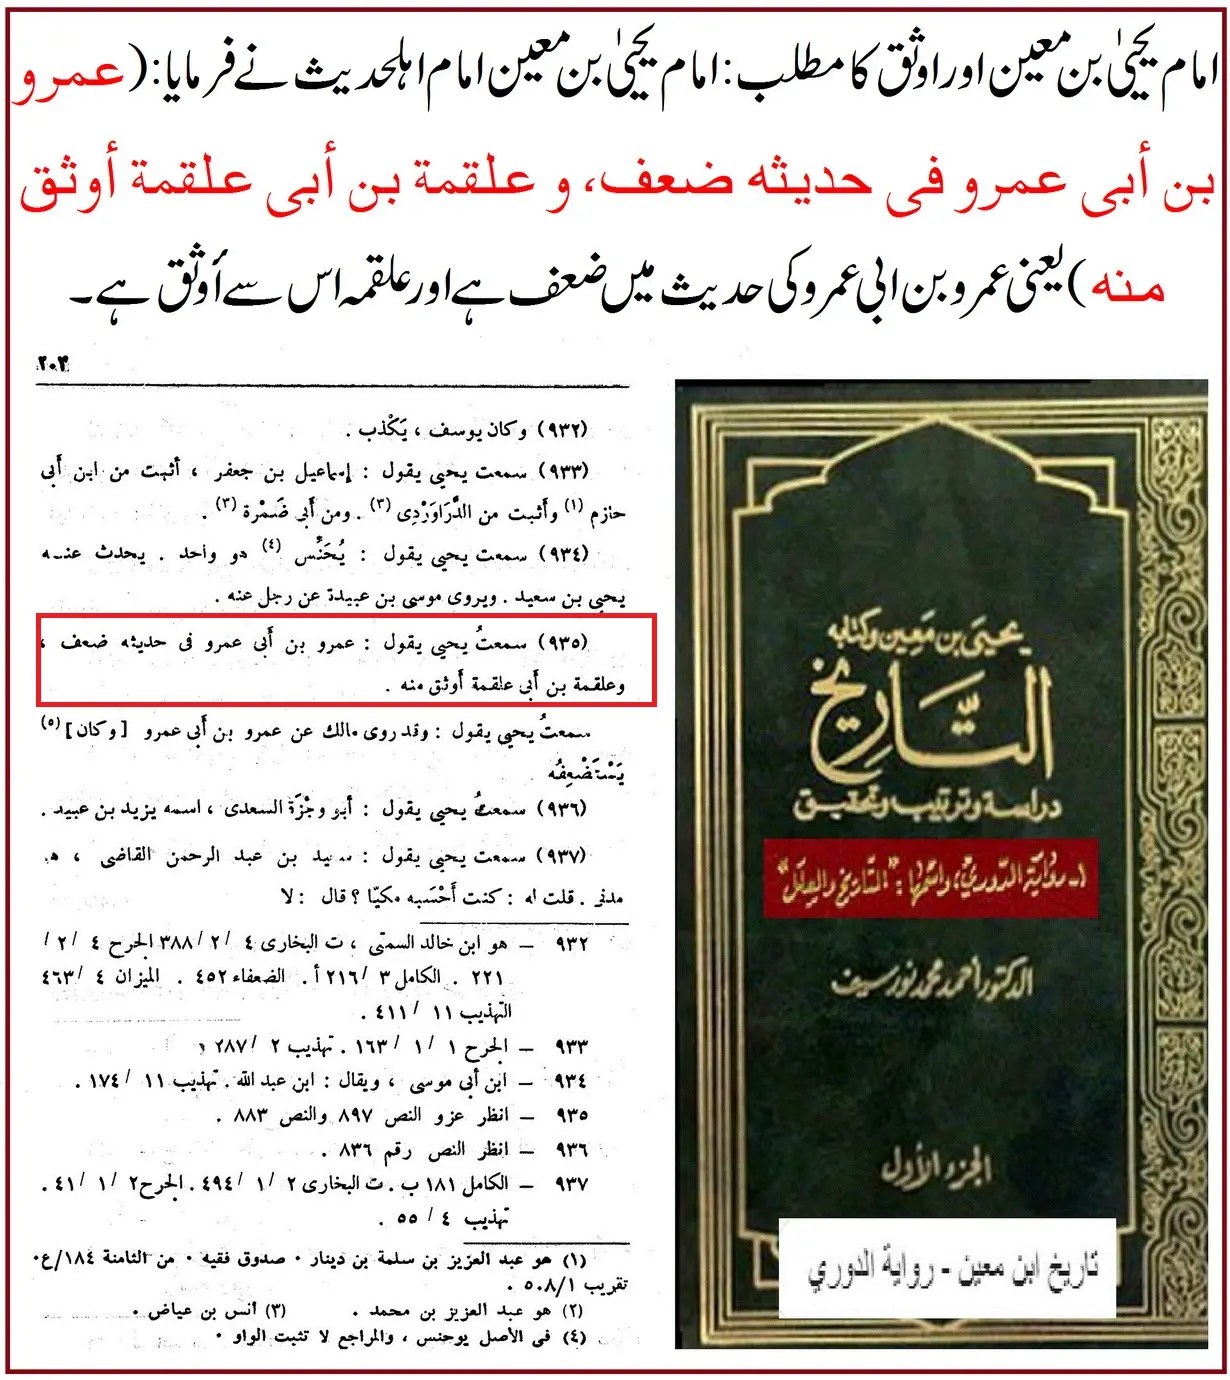 امام یحییٰ بن معین اور اوثق کا مطلب: امام یحییٰ بن معین امام اہلحدیث نے فرمایا: (عمرو
بن أبى عمرو فى حديثه ضعف، و علقمة بن أبى علقمة أوثق
منه) یعنی عمرو بن ابی عمرو کی حدیث میں ضعف ہے اور علقمہ اس سے أوثق ہے۔
٢٠٤
(٩٣٢) وكان يوسف ، يَكْذب .
(٩٣٣) سمعت يحيي يقول : إسماعيل بن جعفر ، أثبت من ابن أبى
حازم (١) وأثبت من الدَّرَاوَرْدِى (٢) . ومن أبى ضَمْرة (٣) .
(٩٣٤) سمعت يحيي يقول : يُحَنِّس (٤) هو واحد . يحدث عنه
يحيي بن سعيد . ويروى موسى بن عبيدة عن رجل عنه .
(٩٣٥) سمعتُ يحيي يقول : عمرو بن أبى عمرو فى حديثه ضعف ،
وعلقمة بن أبى علقمة أوثق منه .
سمعتُ يحيي يقول : وقد روى مالك عن عمرو بن أبى عمرو [ وكان ] (٥)
يَسْتَضْعِفُه
(٩٣٦) سمعتُ يحيي يقول : أبو وجْزَة السعدى ، اسمه يزيد بن عبيد .
(٩٣٧) سمعت يحيي يقول : سعيد بن عبد الرحمن القاضى ، هو
مدنى . قلت له : كنت أَحْسَبه مكيّا ؟ قال : لا
٩٣٢ – هو ابن خالد السمتى ، ت البخارى ٤ / ٢ / ٣٨٨ الجرح ٤ / ٢ /
٢٢١ . الكامل ٣ / ٢١٦ أ . الضعفاء ٤٥٢ . الميزان ٤ / ٤٦٣
التهذيب ١١ / ٤١١ .
٩٣٣ – الجرح ١ / ١ / ١٦٣ . تهذيب ٢ / ٢٨٧
٩٣٤ – ابن أبى موسى ، ويقال : ابن عبد الله . تهذيب ١١ / ١٧٤ .
٩٣٥ – انظر عزو النص ٨٩٧ والنص ٨٨٣ .
٩٣٦ – انظر النص رقم ٨٣٦ .
٩٣٧ – الكامل ١٨١ ب . ت البخارى ٢ / ١ / ٤٩٤ . الجرح ٢ / ١ / ٤١ .
تهذيب ٤ / ٥٥ .
(١) هو عبد العزيز بن سلمة بن دينار . صدوق فقيه . من الثامنة ١٨٤/ع.
تقريب ٥٠٨/١ .
(٢) هو عبد العزيز بن محمد . (٣) أنس بن عياض .
(٤) فى الأصل يوحنس ، والمراجع لا تثبت الواو .
يحيى بن معين وكتابه
التاريخ
دراسة وترتيب وتحقيق
١- رواية الدوري، واسمها: "التاريخ والعلل"
الدكتور أحمد محمد نور سيف
الجزء الأول
تاريخ ابن معين - رواية الدوري